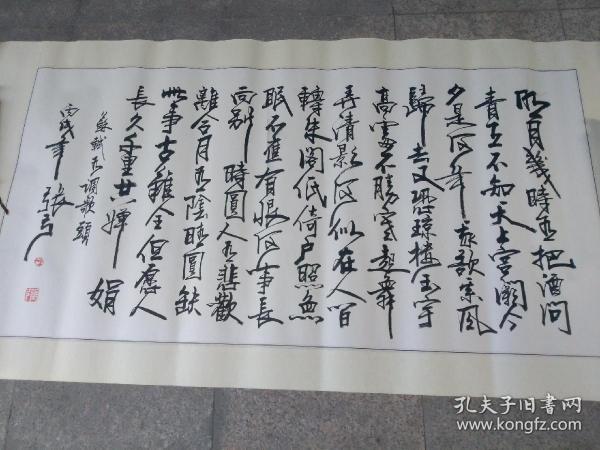 明月幾時有把酒问
青天不知天上宫阙今
夕是何年我欲乘风
歸去又恐琼楼玉宇
高處不勝寒起舞
弄清影何似在人间
轉朱阁低倚户照無
眠不應有恨何事長
向别時圓人有悲歡
離合月有陰晴圓缺
此事古難全但願人
長久千里共嬋娟
蘇軾水调歌頭
丙戌年 張
孔夫子旧书网
www.kongfz.com